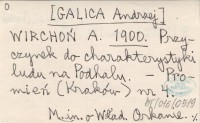 O
[GALICA Andrzej]
WIRCHOŃ A. 1900. Przy-
czynek do charakterystyki
ludu na Podhalu. - Pro-
mień (Kraków) nr 4.
M.in. o Wład. Orkanie.